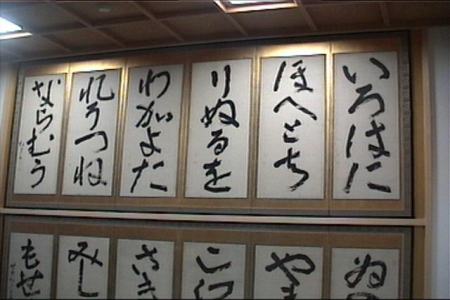 いろはに
ほへとち
りぬるを
わかよた
れそつね
ならむう
ゐ
やま
こ
さき
みし
もせ